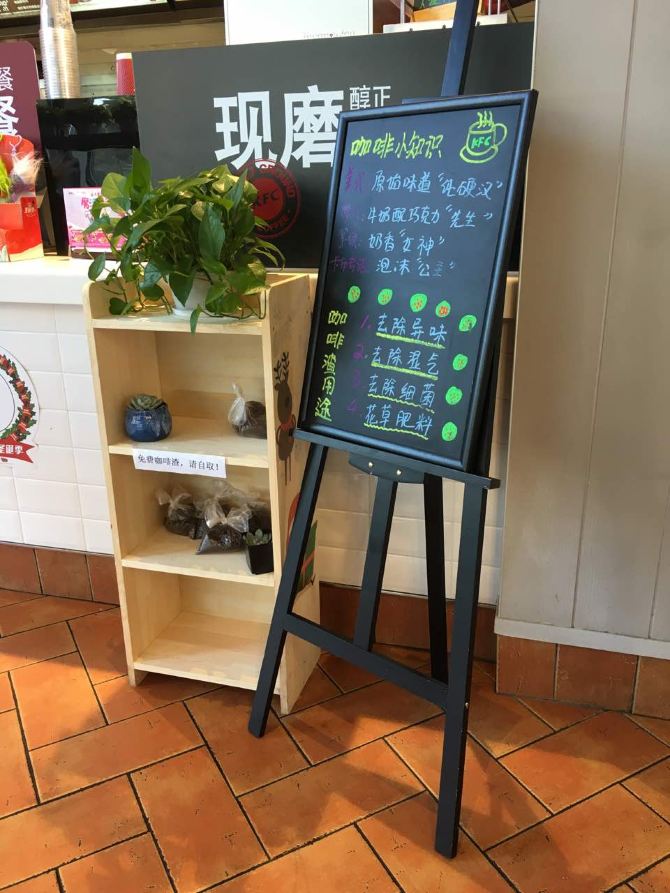 餐
现磨
醇正
KFC
咖啡小知识
KFC
美式: 原始味道"纯硬汉"
牛奶配巧克力"先生"
奶香"女神"
卡布奇诺: 泡沫"公主"
咖啡渣用途
1. 去除异味
2. 去除湿气
3. 去除细菌
4. 花草肥料
免费咖啡渣，请自取！
圣诞季